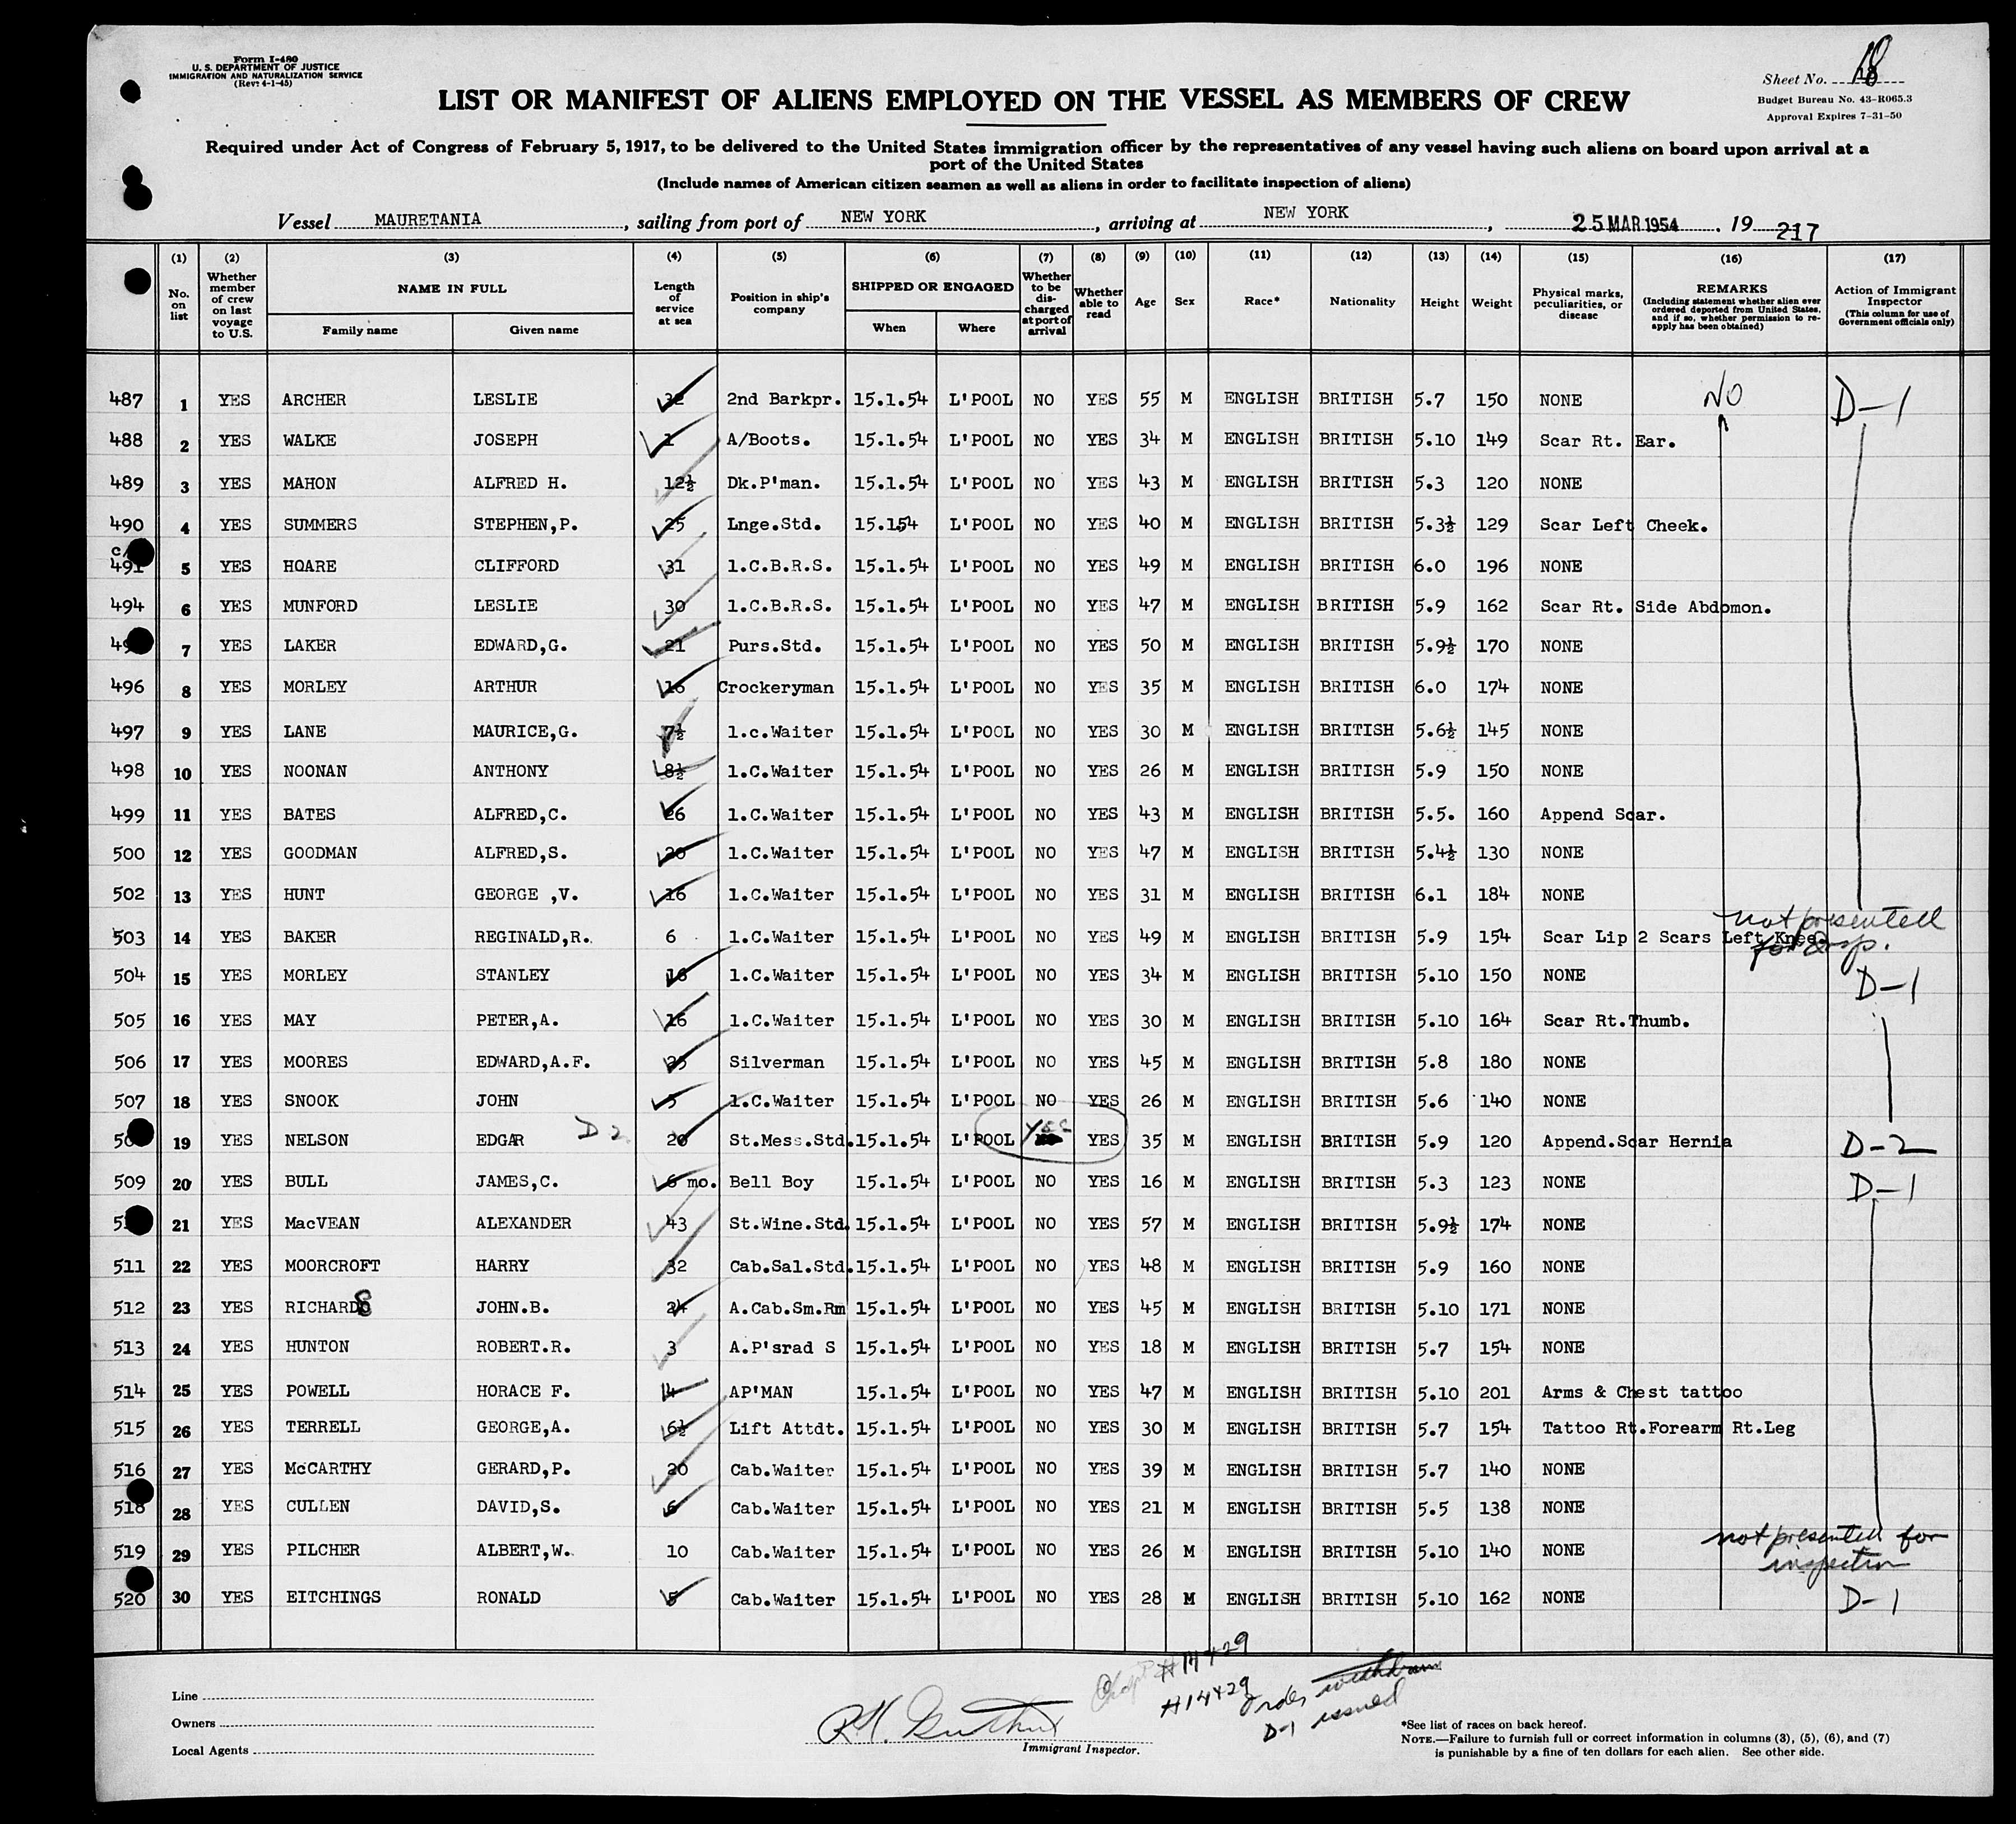 Form I-480
U. S. DEPARTMENT OF JUSTICE
IMMIGRATION AND NATURALIZATION SERVICE
(Rev. 4-1-45)
Sheet No. 18
Budget Bureau No. 43-R065.3
Approval Expires 7-31-50
LIST OR MANIFEST OF ALIENS EMPLOYED ON THE VESSEL AS MEMBERS OF CREW
Required under Act of Congress of February 5, 1917, to be delivered to the United States immigration officer by the representatives of any vessel having such aliens on board upon arrival at a
port of the United States
(Include names of American citizen seamen as well as aliens in order to facilitate inspection of aliens)
Vessel MAURETANIA, sailing from port of NEW YORK, arriving at NEW YORK, 25 MAR 1954, 19 217
(1) No. on list (2) Whether member of crew on last voyage to U.S. (3) NAME IN FULL Family name Given name (4) Length of service at sea (5) Position in ship's company (6) SHIPPED OR ENGAGED When Where (7) Whether to be discharged at port of arrival (8) Whether able to read (9) Age (10) Sex (11) Race* (12) Nationality (13) Height (14) Weight (15) Physical marks, peculiarities, or disease (16) REMARKS (Including statement whether alien ever ordered deported from United States, and if so, whether permission to re-apply has been obtained) (17) Action of Immigrant Inspector (This column for use of Government officials only)
487 1 YES ARCHER LESLIE 32 2nd Barkpr. 15.1.54 L'POOL NO YES 55 M ENGLISH BRITISH 5.7 150 NONE NO D-1
488 2 YES WALKE JOSEPH 1 A/Boots. 15.1.54 L'POOL NO YES 34 M ENGLISH BRITISH 5.10 149 Scar Rt. Ear.
489 3 YES MAHON ALFRED H. 12½ Dk.P'man. 15.1.54 L'POOL NO YES 43 M ENGLISH BRITISH 5.3 120 NONE
490 4 YES SUMMERS STEPHEN,P. 25 Lnge.Std. 15.154 L'POOL NO YES 40 M ENGLISH BRITISH 5.3½ 129 Scar Left Cheek.
491 5 YES HOARE CLIFFORD 31 1.C.B.R.S. 15.1.54 L'POOL NO YES 49 M ENGLISH BRITISH 6.0 196 NONE
494 6 YES MUNFORD LESLIE 30 1.C.B.R.S. 15.1.54 L'POOL NO YES 47 M ENGLISH BRITISH 5.9 162 Scar Rt. Side Abdomon.
7 YES LAKER EDWARD,G. 21 Purs.Std. 15.1.54 L'POOL NO YES 50 M ENGLISH BRITISH 5.9½ 170 NONE
496 8 YES MORLEY ARTHUR 16 Crockeryman 15.1.54 L'POOL NO YES 35 M ENGLISH BRITISH 6.0 174 NONE
497 9 YES LANE MAURICE,G. 7½ 1.c.Waiter 15.1.54 L'POOL NO YES 30 M ENGLISH BRITISH 5.6½ 145 NONE
498 10 YES NOONAN ANTHONY 8½ 1.C.Waiter 15.1.54 L'POOL NO YES 26 M ENGLISH BRITISH 5.9 150 NONE
499 11 YES BATES ALFRED,C. 26 1.C.Waiter 15.1.54 L'POOL NO YES 43 M ENGLISH BRITISH 5.5. 160 Append Scar.
500 12 YES GOODMAN ALFRED,S. 20 1.C.Waiter 15.1.54 L'POOL NO YES 47 M ENGLISH BRITISH 5.4½ 130 NONE
502 13 YES HUNT GEORGE ,V. 16 1.C.Waiter 15.1.54 L'POOL NO YES 31 M ENGLISH BRITISH 6.1 184 NONE
503 14 YES BAKER REGINALD,R. 6 1.C.Waiter 15.1.54 L'POOL NO YES 49 M ENGLISH BRITISH 5.9 154 Scar Lip 2 Scars Left Knee. not presented for insp.
504 15 YES MORLEY STANLEY 16 1.C.Waiter 15.1.54 L'POOL NO YES 34 M ENGLISH BRITISH 5.10 150 NONE D-1
505 16 YES MAY PETER,A. 16 1.C.Waiter 15.1.54 L'POOL NO YES 30 M ENGLISH BRITISH 5.10 164 Scar Rt.Thumb.
506 17 YES MOORES EDWARD,A.F. 25 Silverman 15.1.54 L'POOL NO YES 45 M ENGLISH BRITISH 5.8 180 NONE
507 18 YES SNOOK JOHN 5 1.C.Waiter 15.1.54 L'POOL NO YES 26 M ENGLISH BRITISH 5.6 140 NONE
19 YES NELSON EDGAR D 2 20 St.Mess.Std. 15.1.54 L'POOL Yes YES 35 M ENGLISH BRITISH 5.9 120 Append.Scar Hernia D-2
509 20 YES BULL JAMES,C. 6 mo. Bell Boy 15.1.54 L'POOL NO YES 16 M ENGLISH BRITISH 5.3 123 NONE D-1
21 YES MacVEAN ALEXANDER 43 St.Wine.Std. 15.1.54 L'POOL NO YES 57 M ENGLISH BRITISH 5.9½ 174 NONE
511 22 YES MOORCROFT HARRY 32 Cab.Sal.Std. 15.1.54 L'POOL NO YES 48 M ENGLISH BRITISH 5.9 160 NONE
512 23 YES RICHARDS JOHN.B. 24 A.Cab.Sm.Rm 15.1.54 L'POOL NO YES 45 M ENGLISH BRITISH 5.10 171 NONE
513 24 YES HUNTON ROBERT.R. 3 A.P'srad S 15.1.54 L'POOL NO YES 18 M ENGLISH BRITISH 5.7 154 NONE
514 25 YES POWELL HORACE F. 14 AP'MAN 15.1.54 L'POOL NO YES 47 M ENGLISH BRITISH 5.10 201 Arms & Chest tattoo
515 26 YES TERRELL GEORGE,A. 6½ Lift Attdt. 15.1.54 L'POOL NO YES 30 M ENGLISH BRITISH 5.7 154 Tattoo Rt.Forearm Rt.Leg
516 27 YES McCARTHY GERARD,P. 20 Cab.Waiter 15.1.54 L'POOL NO YES 39 M ENGLISH BRITISH 5.7 140 NONE
518 28 YES CULLEN DAVID,S. 6 Cab.Waiter 15.1.54 L'POOL NO YES 21 M ENGLISH BRITISH 5.5 138 NONE
519 29 YES PILCHER ALBERT,W. 10 Cab.Waiter 15.1.54 L'POOL NO YES 26 M ENGLISH BRITISH 5.10 140 NONE not presented for inspection
520 30 YES EITCHINGS RONALD 5 Cab.Waiter 15.1.54 L'POOL NO YES 28 M ENGLISH BRITISH 5.10 162 NONE D-1
#14429
#14429 Order withdrawn
D-1 issued
Line
Owners
Local Agents
Immigrant Inspector.
*See list of races on back hereof.
NOTE.—Failure to furnish full or correct information in columns (3), (5), (6), and (7)
is punishable by a fine of ten dollars for each alien. See other side.